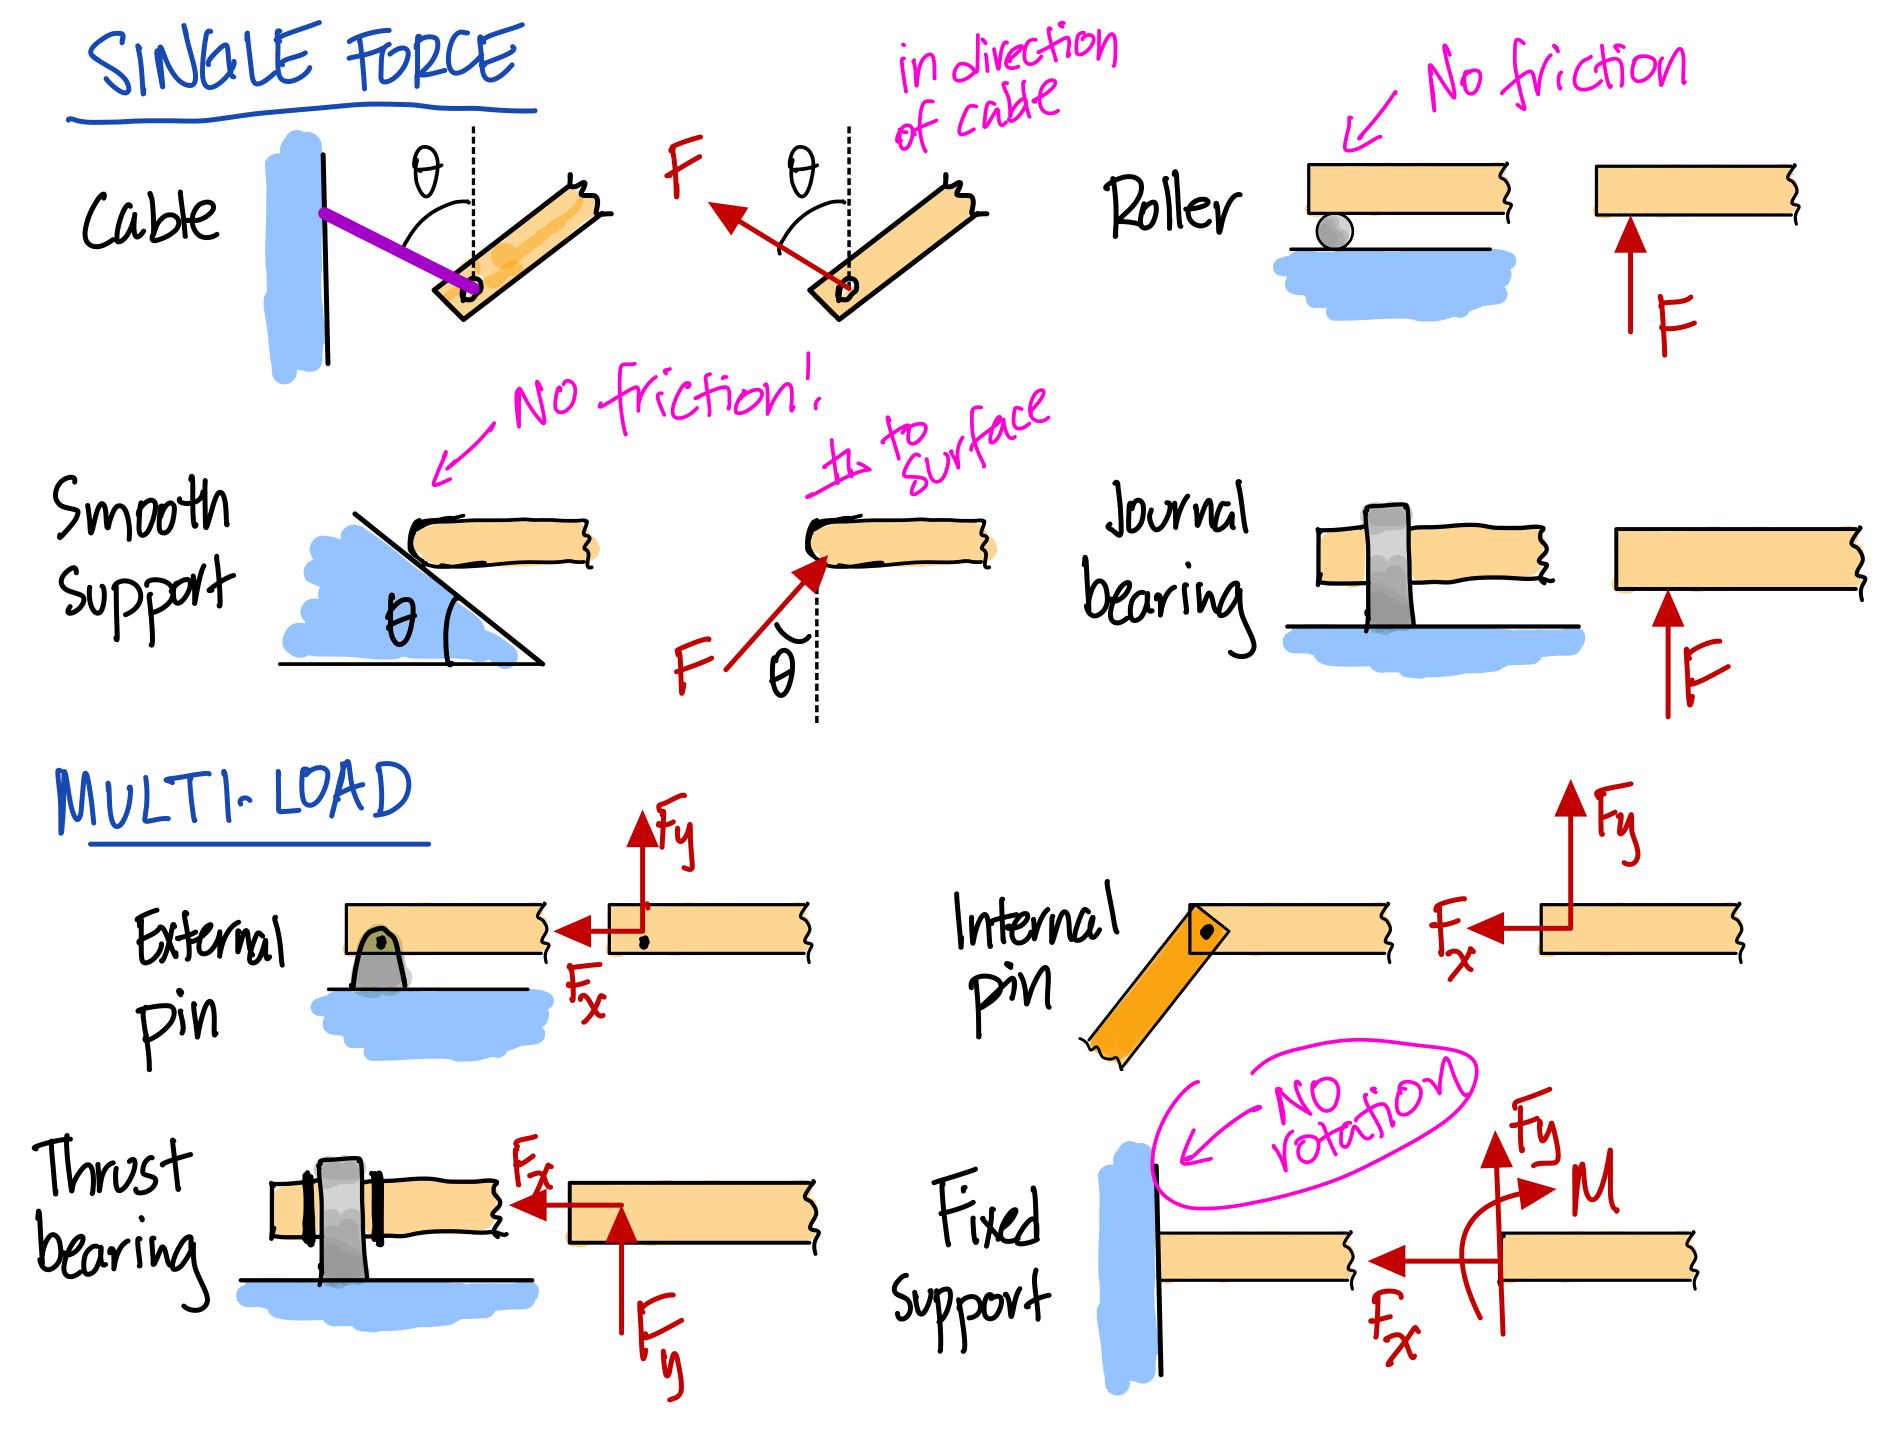 SINGLE FORCE
Cable
θ
F
θ
in direction
of cable
Roller
No friction
F
Smooth
support
No friction!
θ
F
θ
⊥ to
surface
Journal
bearing
F
MULTI-LOAD
External
pin
Fy
Fx
Internal
pin
Fy
Fx
Thrust
bearing
Fx
Fy
Fixed
support
NO
rotation
Fy
M
Fx